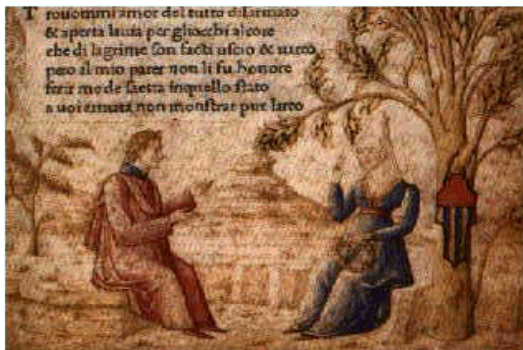 T rovommi amor del tutto disarmato
& aperta la via per gliocchi al core
che di lagrime son facti uscio & varco
pero al mio parer non li fu honore
ferir me de saetta in quello stato
a voi armata non monstrar pur larco